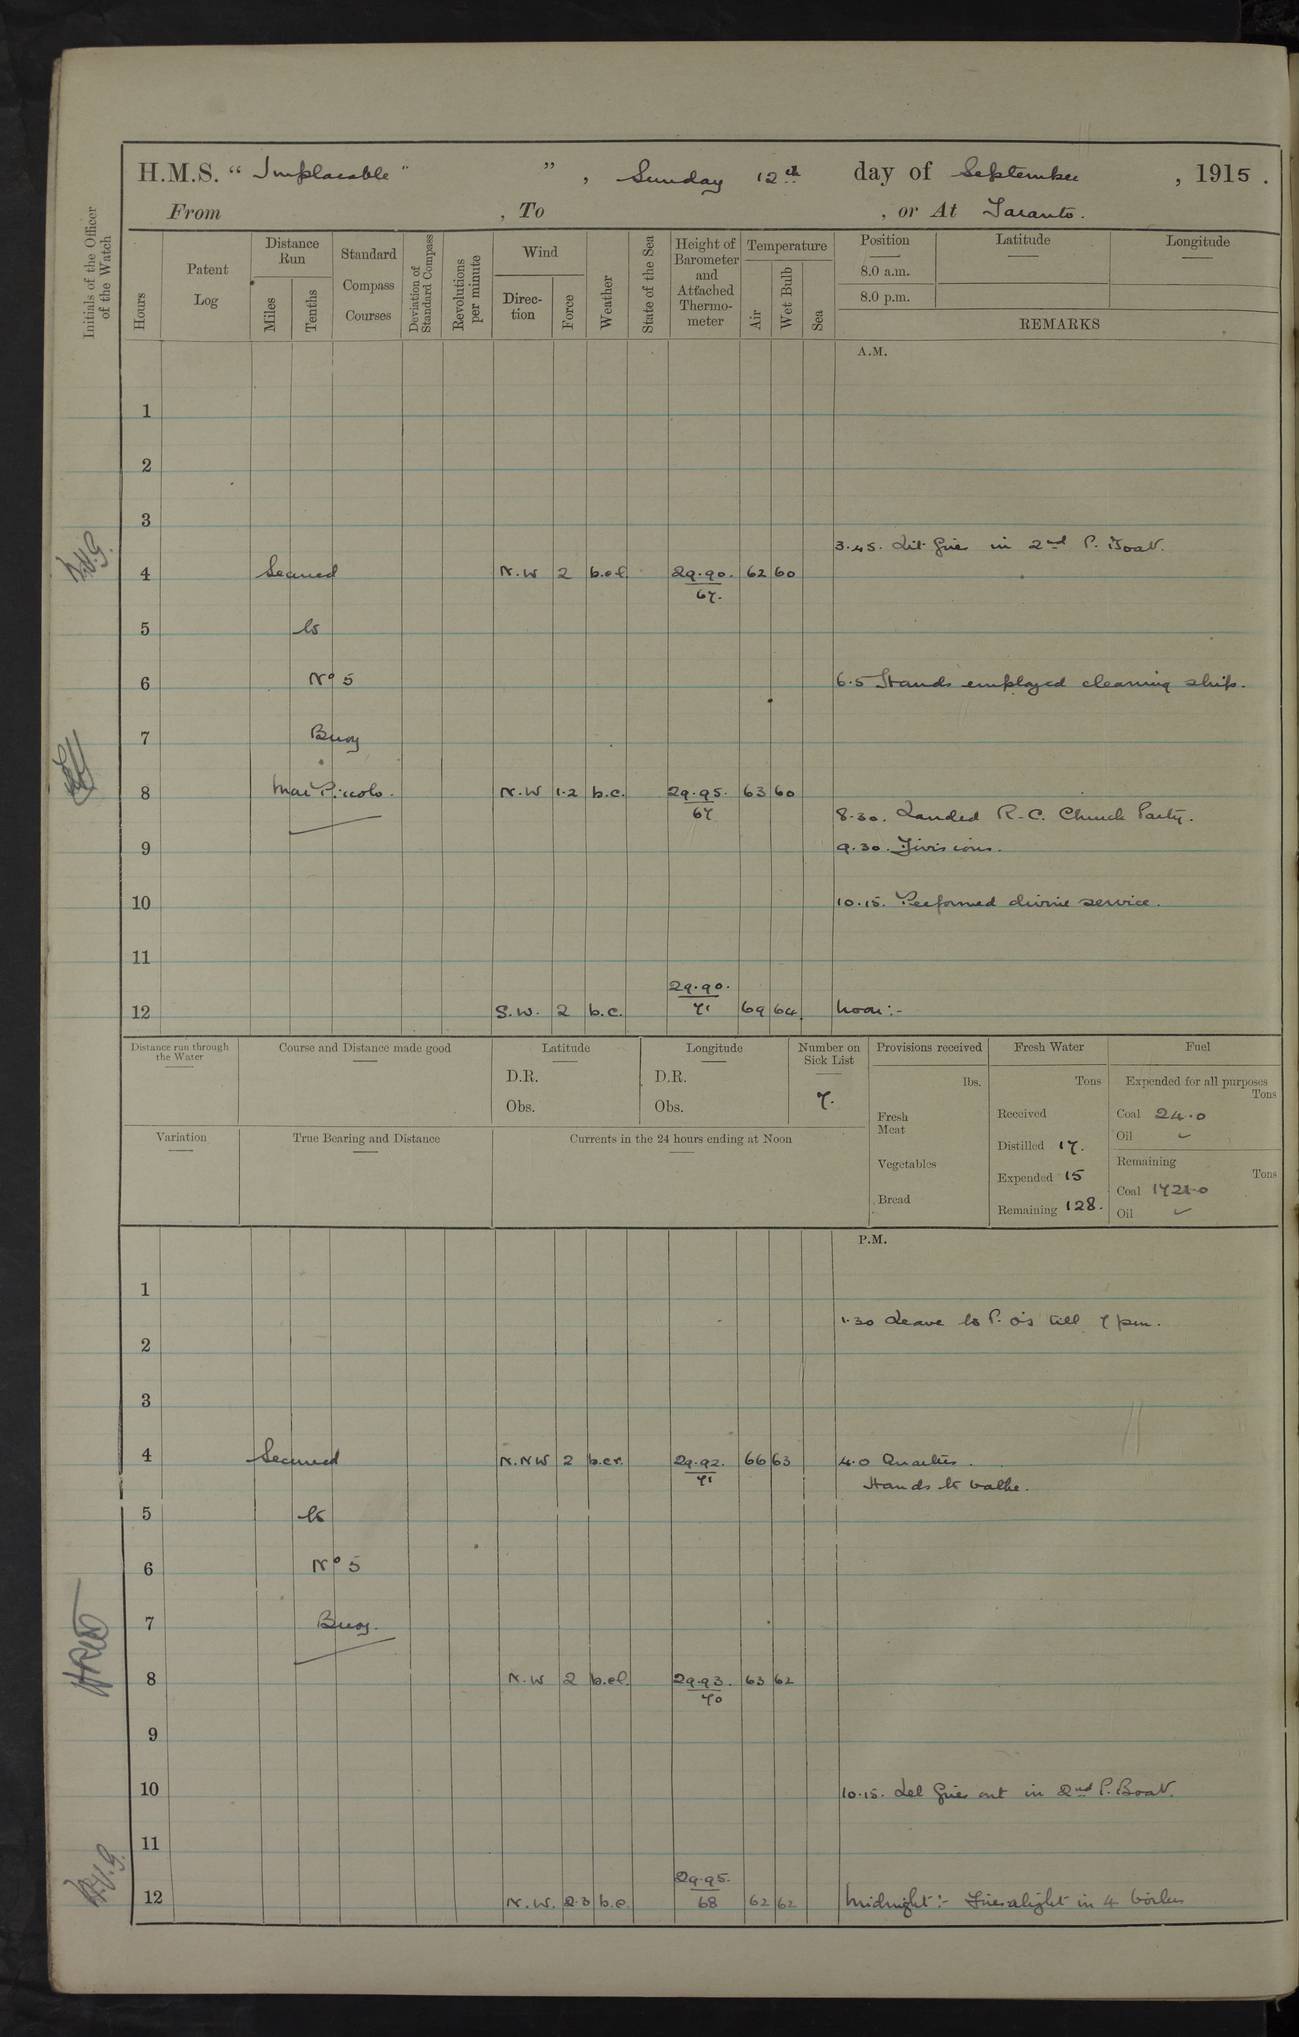 H.M.S. “ Implacable ” ” , Sunday 12th day of September , 1915 .
From , To , or At Taranto.
Initials of the Officer of the Watch
Hours
Patent Log
Distance Run
Miles
Tenths
Standard Compass Courses
Deviation of Standard Compass
Revolutions per minute
Wind
Direc-tion
Force
Weather
State of the Sea
Height of Barometer and Attached Thermo-meter
Temperature
Air
Wet Bulb
Sea
Position
8.0 a.m.
8.0 p.m.
Latitude
Longitude
REMARKS
A.M.
1
2
3
3.45. Lit fires in 2nd P. Boat.
4 Secured N.W 2 b.c.f. 29.90. 62 60
67.
5 to
6 No 5 6.5 Hands employed cleaning ship.
7 Buoy
8 Mar Piccolo. N.W 1.2 b.c. 29.95. 63 60
67
8.30. Landed R.C. Church Party.
9 9.30. Divisions.
10 10.15. Performed divine service.
11
29.90.
12 S.W. 2 b.c. 71 69 64 Noon:-
Distance run through the Water
Course and Distance made good
Latitude
D.R.
Obs.
Longitude
D.R.
Obs.
Number on Sick List
7.
Provisions received
lbs.
Fresh Meat
Vegetables
Bread
Fresh Water
Tons
Received
Distilled 17.
Expended 15
Remaining 128.
Fuel
Expended for all purposes
Tons
Coal 24.0
Oil ✓
Remaining
Tons
Coal 1721.0
Oil ✓
Variation
True Bearing and Distance
Currents in the 24 hours ending at Noon
P.M.
1
1.30 Leave to P.O's till 7 pm.
2
3
4 Secured N.NW 2 b.cr. 29.92. 66 63 4.0 Quarters.
71
Hands to bathe.
5 to
6 No 5
7 Buoy.
8 N.W 2 b.cf. 29.93. 63 62
70
9
10 10.15. Let fires out in 2nd P. Boat.
11
29.95.
12 N.W. 2.3 b.c. 68 62 62 Midnight:- Fires alight in 4 boilers